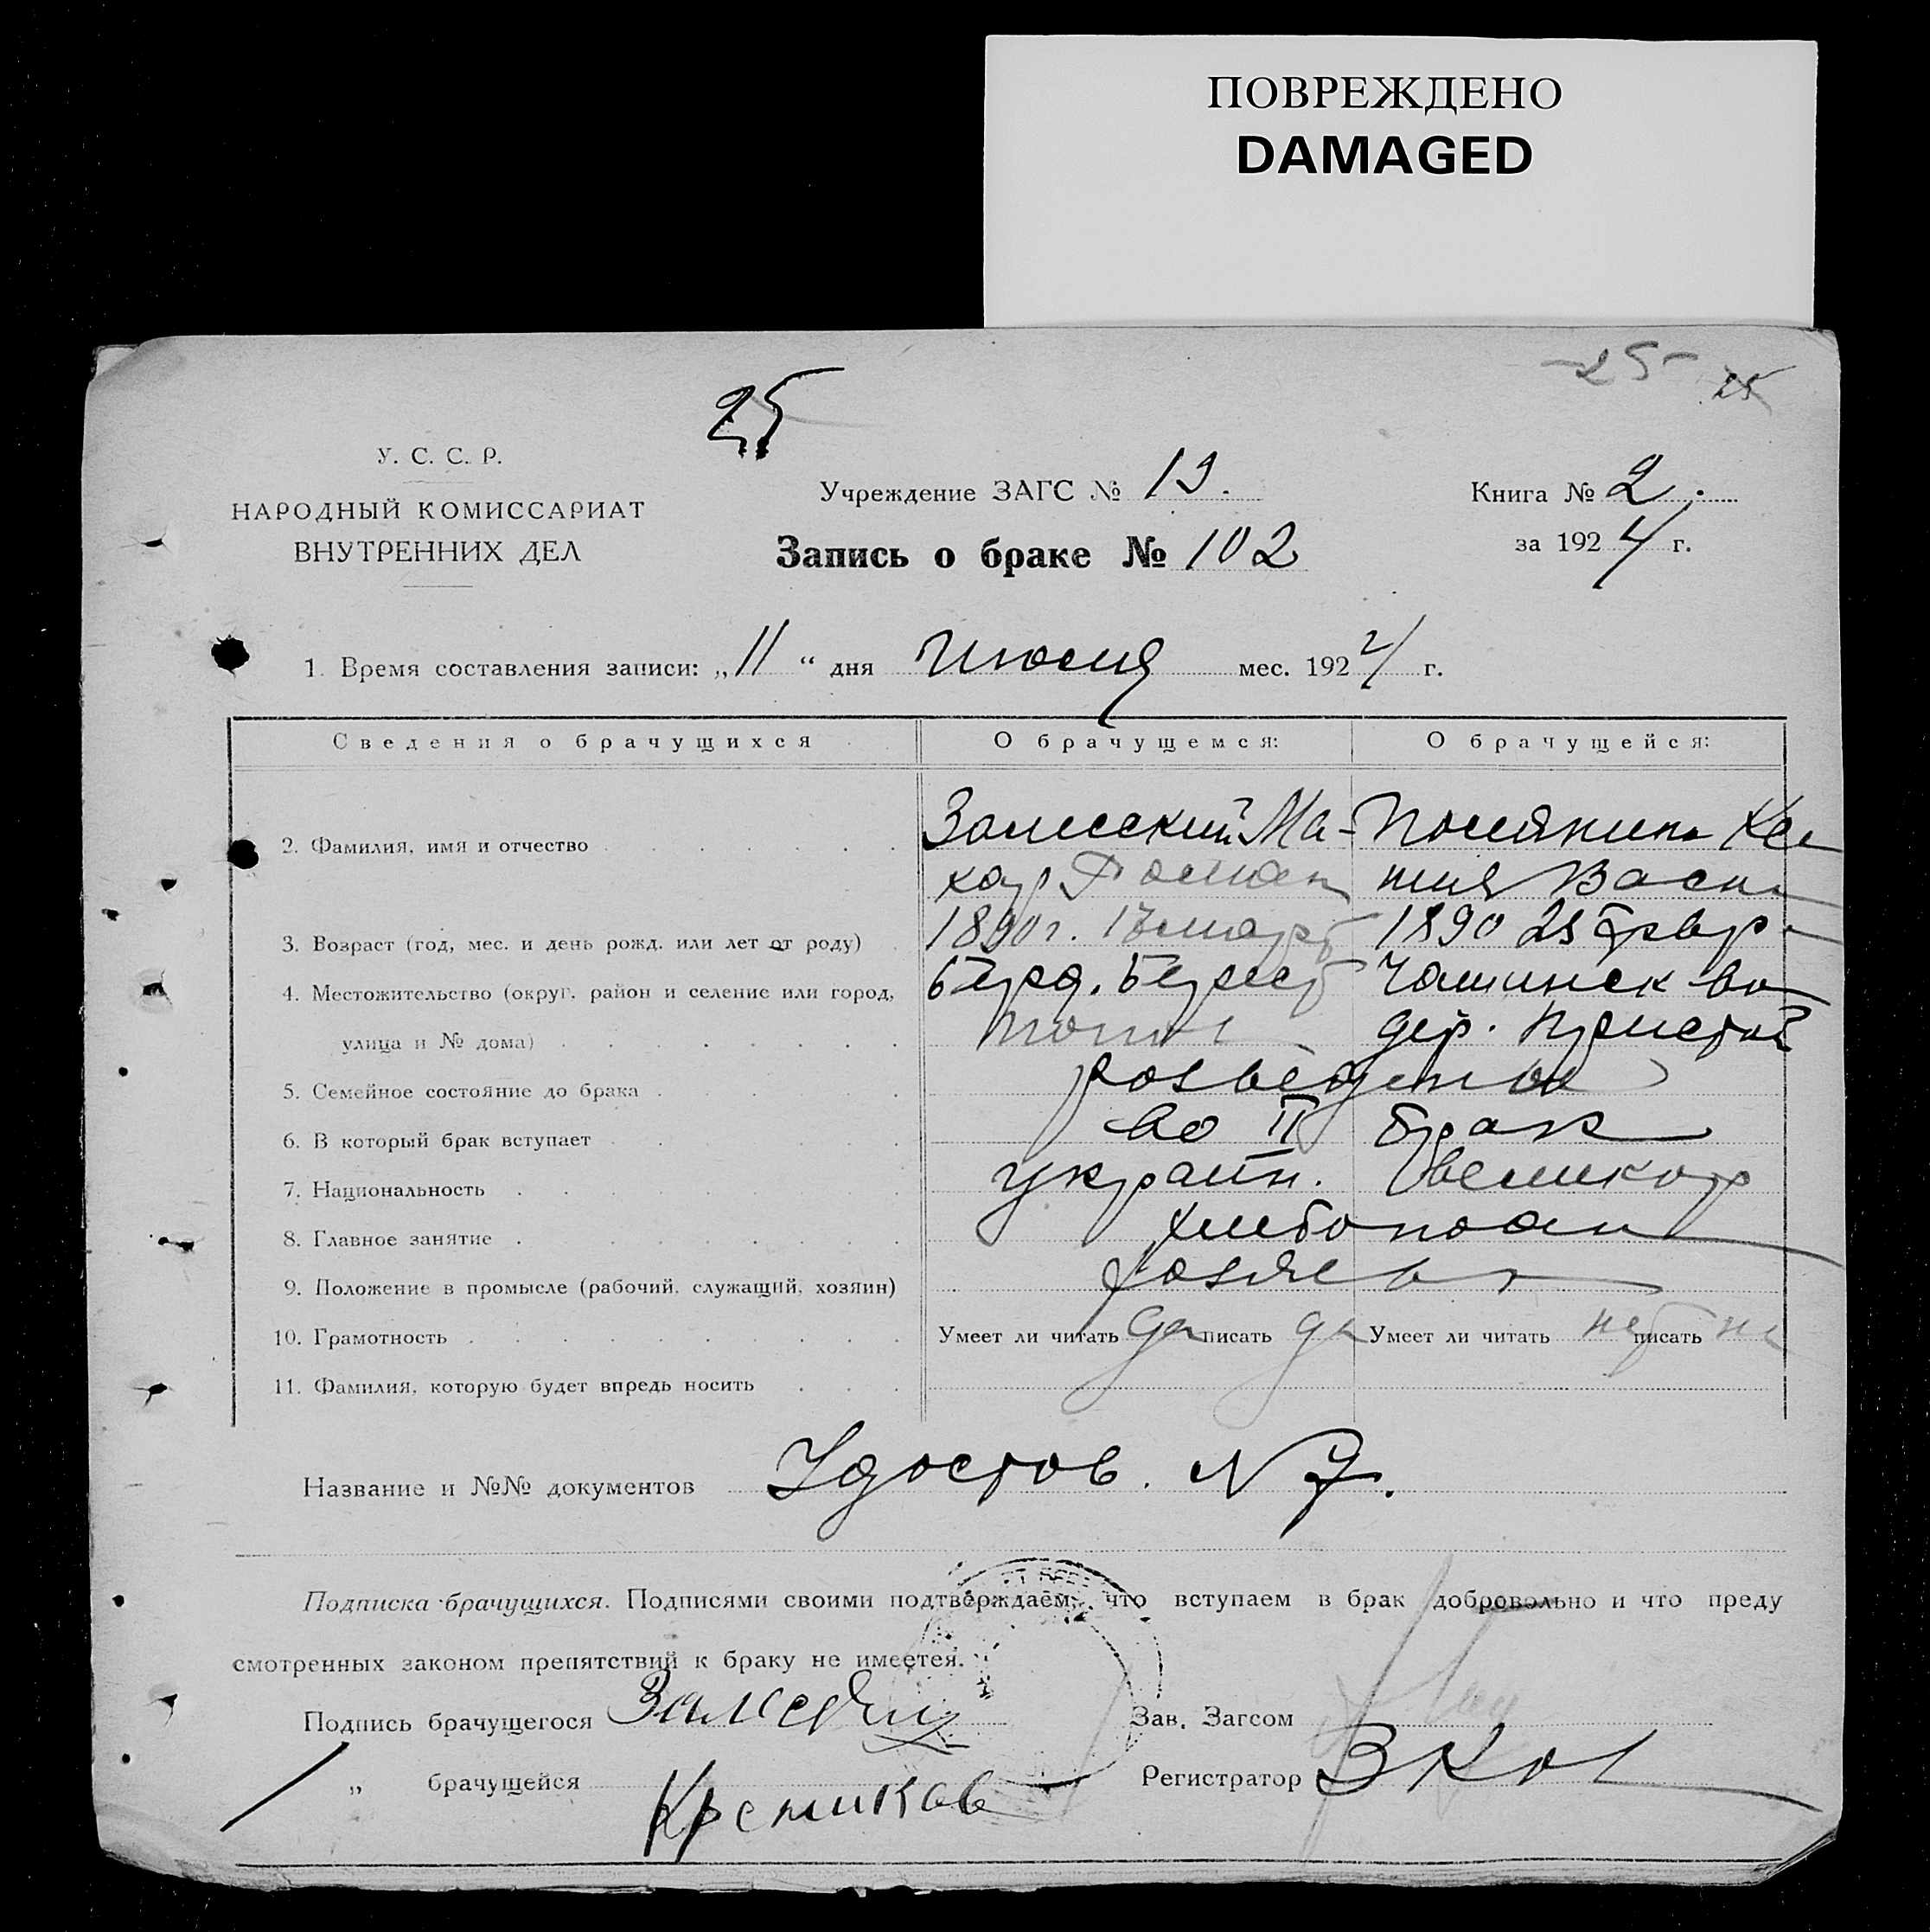 ПОВРЕЖДЕНО
DAMAGED
-25- 25
25
У. С. С. Р.
НАРОДНЫЙ КОМИССАРИАТ
ВНУТРЕННИХ ДЕЛ
Учреждение ЗАГС № 19.
Запись о браке № 102
Книга № 2.
за 1924 г.
1. Время составления записи: „11“ дня Июля мес. 1924 г.
Сведения о брачущихся О брачущемся: О брачущейся:
2. Фамилия, имя и отчество Залесский Ма- Полянина Ксе
кар Роман ния Васи
3. Возраст (год, мес. и день рожд. или лет от роду) 1890 г. 17 март 1890 25 февр.
4. Местожительство (округ, район и селение или город, Берд. Берест вол
улица и № дома) дер.
5. Семейное состояние до брака разведеные
6. В который брак вступает во II брак
7. Национальность украин. великор
8. Главное занятие хлебопаш
9. Положение в промысле (рабочий, служащий, хозяин) хозяева
10. Грамотность Умеет ли читать да писать да Умеет ли читать нет писать не
11. Фамилия, которую будет впредь носить
Название и №№ документов Удостов. N 7.
Подписка брачущихся. Подписями своими подтверждаем, что вступаем в брак добровольно и что преду
смотренных законом препятствий к браку не имеется.
Подпись брачущегося Зав. Загсом
„ брачущейся Регистратор